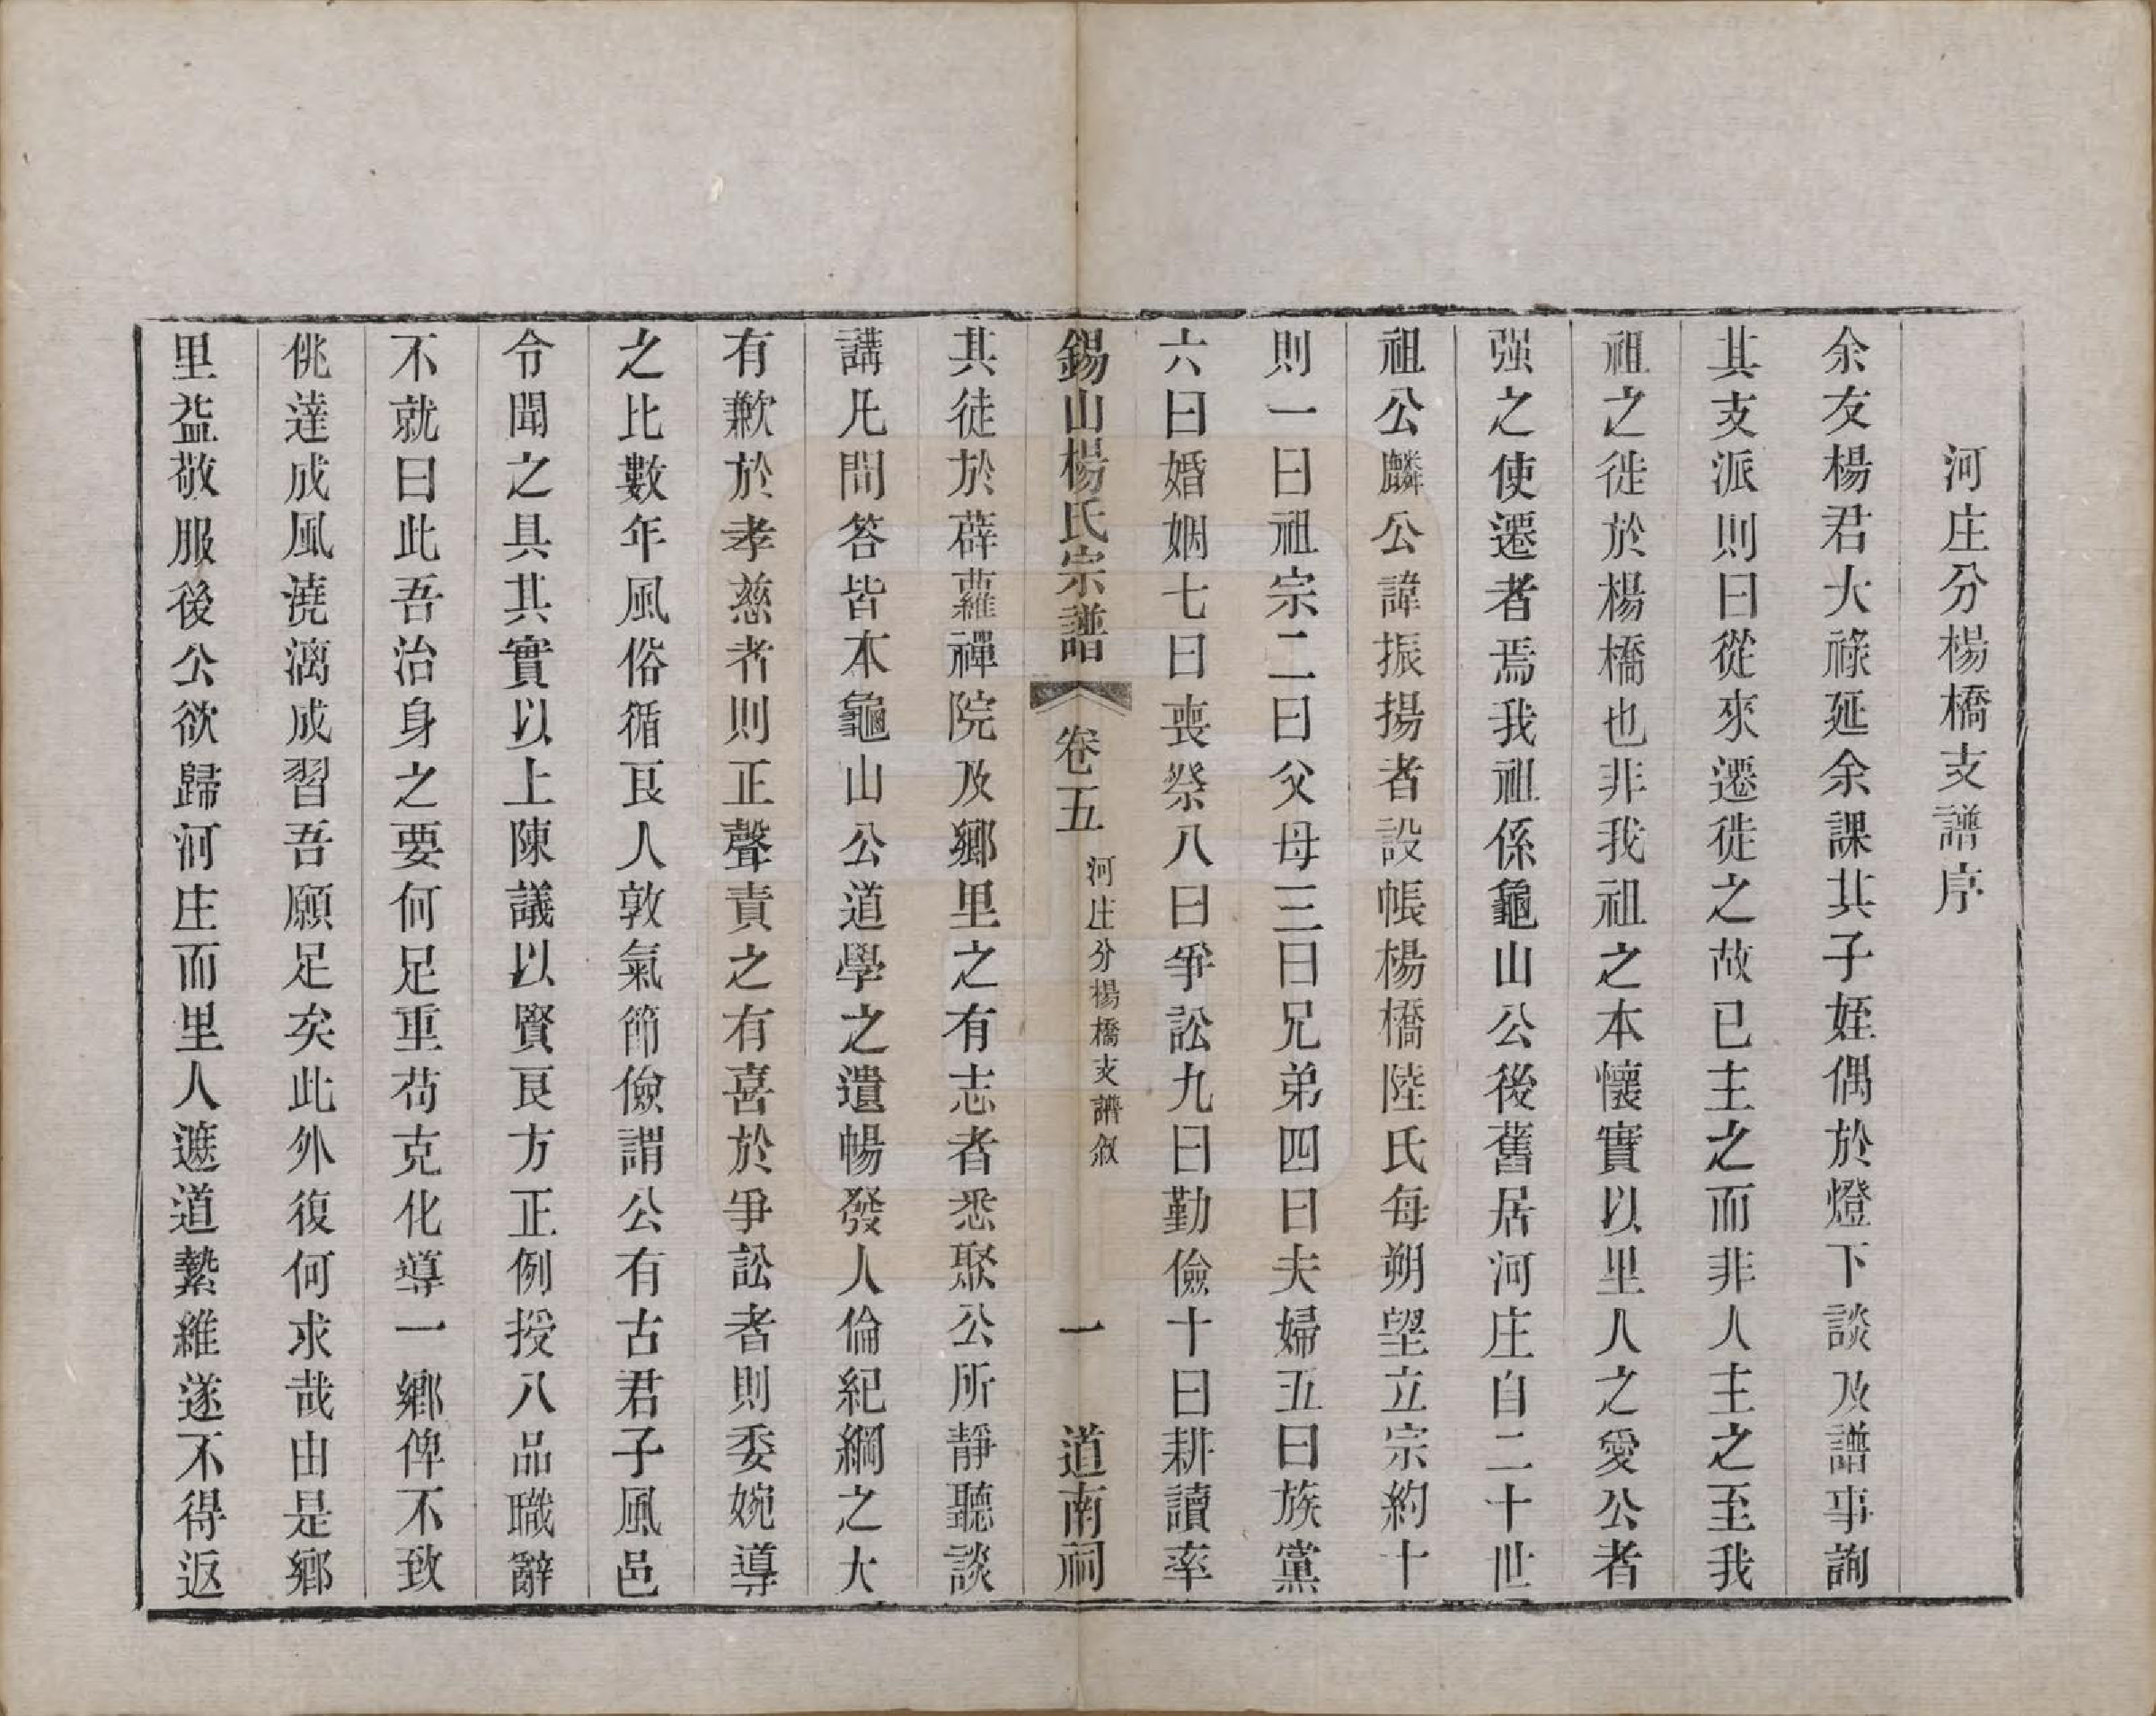 河庄分楊橋支譜序
余友楊君大祿延余課其子姪偶於燈下談及譜事詢
其支派則曰從來遷徙之故已主之而非人主之至我
祖之徙於楊橋也非我祖之本懷實以里人之愛公者
强之使遷者焉我祖係龜山公後舊居河庄自二十世
祖公麟公諱振揚者設帳楊橋陸氏每朔望立宗約十
則一曰祖宗二曰父母三曰兄弟四曰夫婦五曰族黨
六曰婚姻七曰喪祭八曰爭訟九曰勤儉十曰耕讀率
錫山楊氏宗譜 卷五 河庄分楊橋支譜敘 一 道南祠
其徒於薜蘿禪院及鄉里之有志者悉聚公所靜聽談
講凡問答皆本龜山公道學之遺暢發人倫紀綱之大
有歉於孝慈者則正聲責之有喜於爭訟者則委婉導
之比數年風俗循良人敦氣節僉謂公有古君子風邑
令聞之具其實以上陳議以賢良方正例授八品職辭
不就曰此吾治身之要何足重苟克化導一鄉俾不致
佻達成風澆漓成習吾願足矣此外復何求哉由是鄉
里益敬服後公欲歸河庄而里人遮道縶維遂不得返